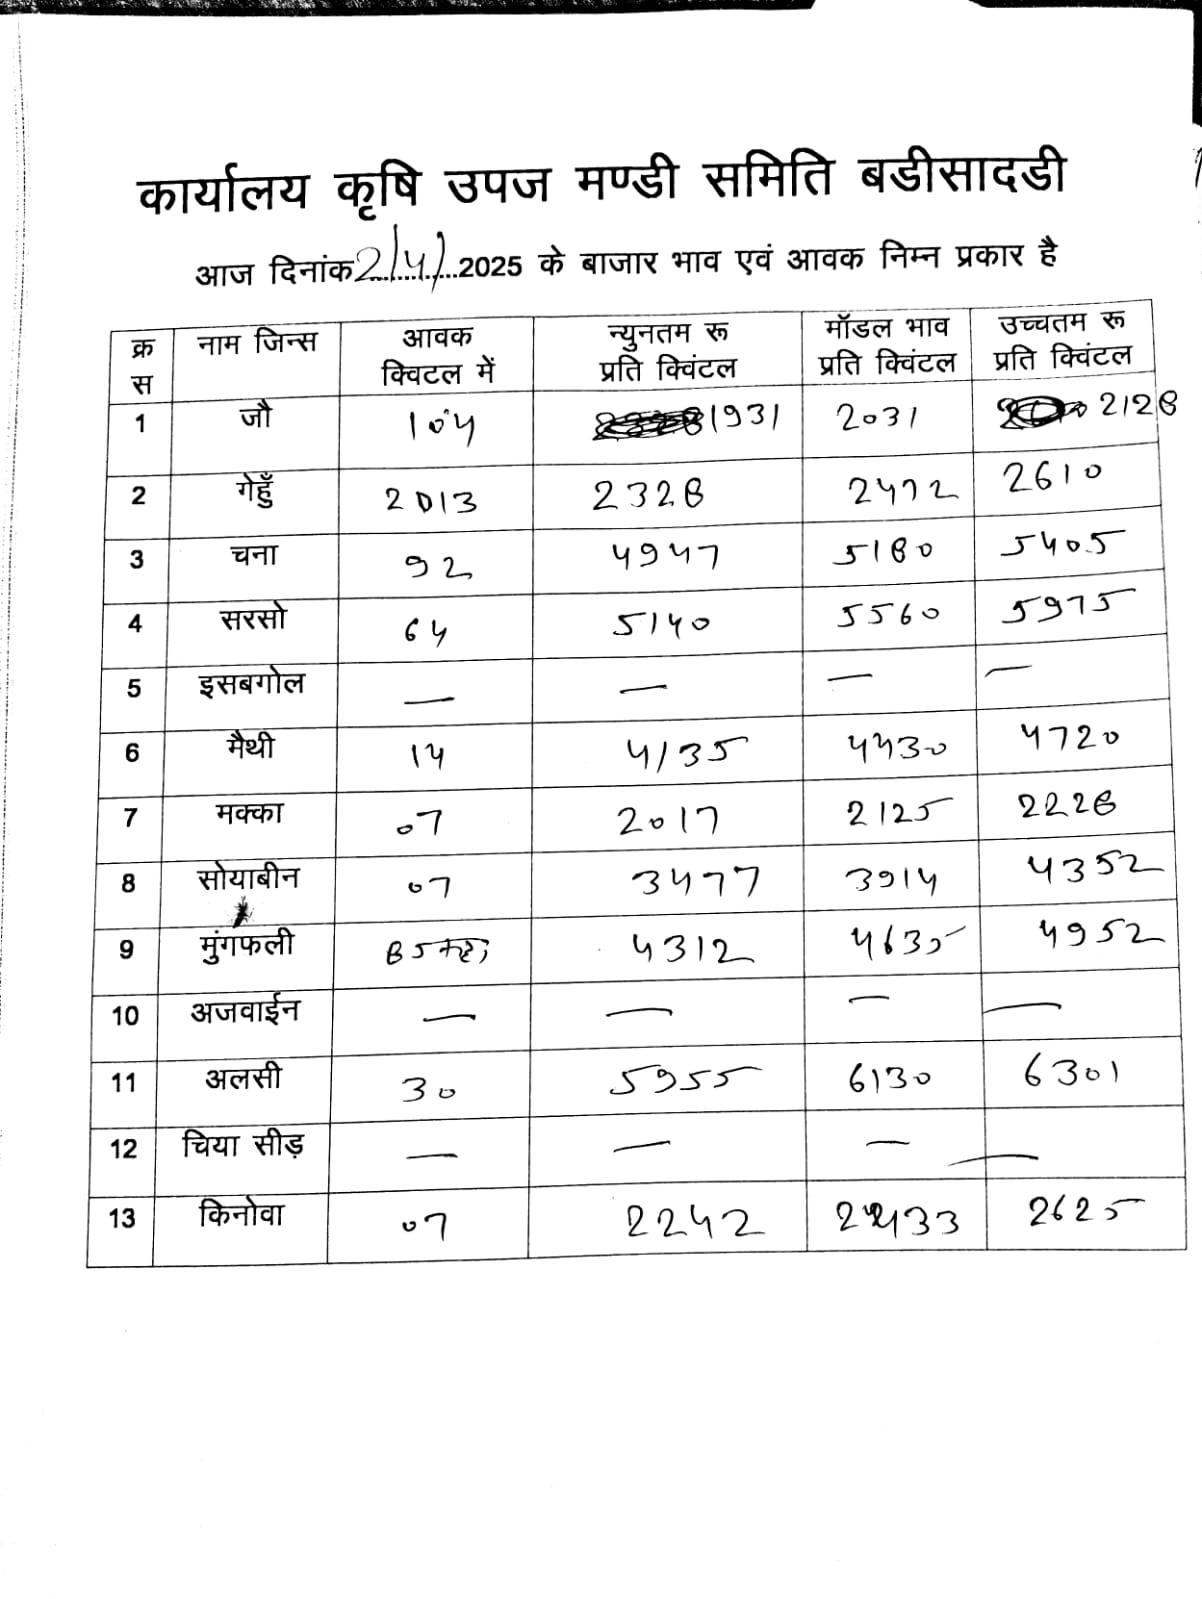 कार्यालय कृषि उपज मण्डी समिति बडीसादडी
आज दिनांक 2/4/2025 के बाजार भाव एवं आवक निम्न प्रकार है
क्र स नाम जिन्स आवक क्विटल में न्युनतम रू प्रति क्विंटल मॉडल भाव प्रति क्विंटल उच्चतम रू प्रति क्विंटल
1 जौ 104 1931 2031 2128
2 गेहुँ 2013 2328 2472 2610
3 चना 92 4947 5180 5405
4 सरसो 64 5140 5560 5975
5 इसबगोल — — — —
6 मैथी 14 4135 4430 4720
7 मक्का 07 2017 2125 2228
8 सोयाबीन 07 3477 3914 4352
9 मुंगफली 85 4312 4635 4952
10 अजवाईन — — — —
11 अलसी 30 5955 6130 6301
12 चिया सीड़ — — — —
13 किनोवा 07 2242 2433 2625